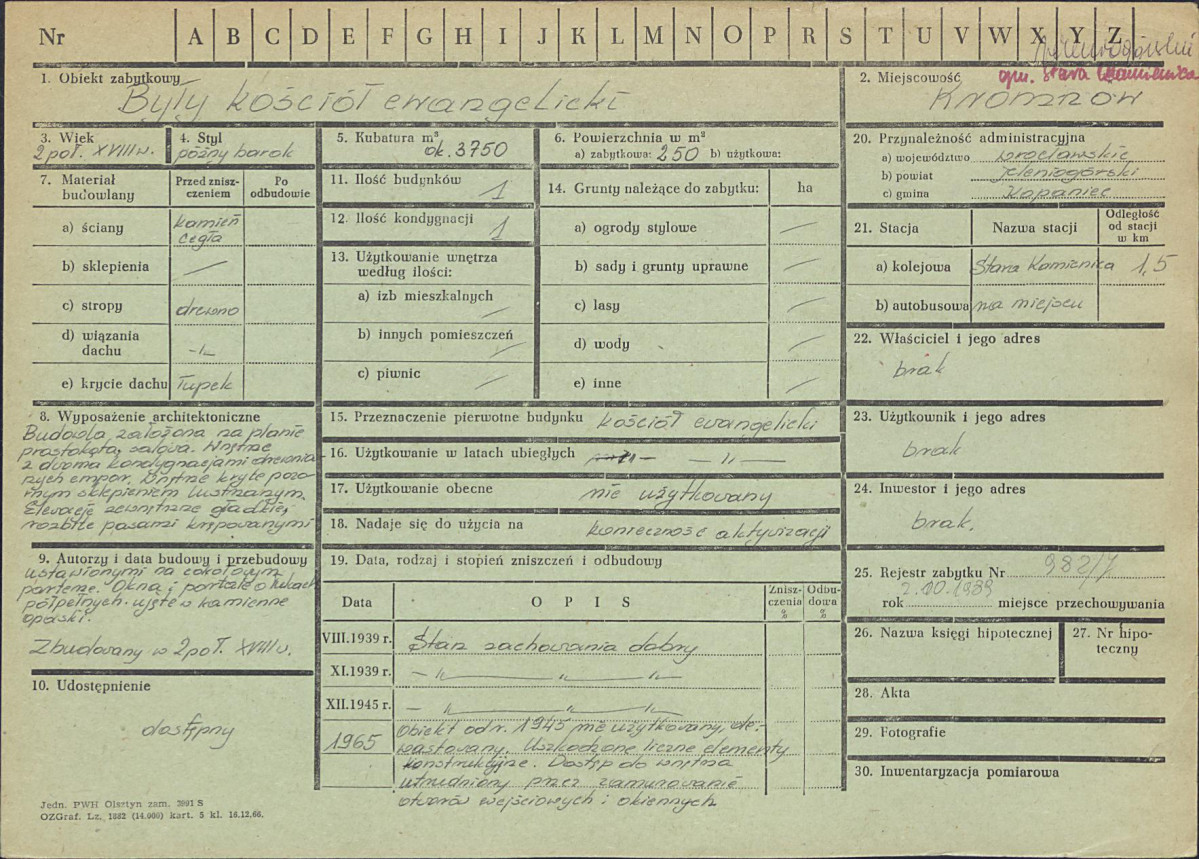 Nr A B C D E F G H I J K L M N O P R S T U V W X Y Z
gm. Stara Kamienica
1. Obiekt zabytkowy
Były kościół ewangelicki
2. Miejscowość
Kromnów
3. Wiek
2 poł. XVIII w.
4. Styl
późny barok
5. Kubatura m³
ok. 3750
6. Powierzchnia w m²
a) zabytkowa: 250 b) użytkowa:
7. Materiał budowlany
Przed zniszczeniem
Po odbudowie
a) ściany kamień cegła
b) sklepienia —
c) stropy drewno
d) wiązania dachu -"-
e) krycie dachu łupek
8. Wyposażenie architektoniczne
Budowla założona na planie
prostokąta, salowa. Wnętrze
z dwoma kondygnacjami drewnia-
nych empor. Wnętrze kryte pozo-
rnym sklepieniem lustrzanym.
Elewacje zewnętrzne gładkie,
rozbite pasami lizenowymi
9. Autorzy i data budowy i przebudowy
ustawionymi na cokołowym
parterze. Okna i portale o łukach
półpełnych ujęte w kamienne
opaski.
Zbudowany w 2 poł. XVIII w.
10. Udostępnienie
dostępny
11. Ilość budynków 1
12. Ilość kondygnacji 1
13. Użytkowanie wnętrza
według ilości:
a) izb mieszkalnych —
b) innych pomieszczeń —
c) piwnic —
14. Grunty należące do zabytku: ha
a) ogrody stylowe —
b) sady i grunty uprawne —
c) lasy —
d) wody —
e) inne —
15. Przeznaczenie pierwotne budynku kościół ewangelicki
16. Użytkowanie w latach ubiegłych — " —
17. Użytkowanie obecne nie użytkowany
18. Nadaje się do użycia na konieczność aktywizacji
19. Data, rodzaj i stopień zniszczeń i odbudowy
Data
O P I S
Zniszczenia %
Odbudowa %
VIII.1939 r. Stan zachowania dobry
XI.1939 r. — " — " — " —
XII.1945 r. — " — " — " —
1965 Obiekt od r. 1945 nie użytkowany, de-
wastowany. Uszkodzone liczne elementy
konstrukcyjne. Dostęp do wnętrza
utrudniony przez zamurowanie
otworów wejściowych i okiennych
20. Przynależność administracyjna
a) województwo wrocławskie
b) powiat jeleniogórski
c) gmina Kopaniec
21. Stacja
Nazwa stacji
Odległość od stacji w km
a) kolejowa Stara Kamienica 1,5
b) autobusowa na miejscu
22. Właściciel i jego adres
brak
23. Użytkownik i jego adres
brak
24. Inwestor i jego adres
brak.
25. Rejestr zabytku Nr 982/J
rok 2.10.1989 miejsce przechowywania
26. Nazwa księgi hipotecznej
27. Nr hipoteczny
28. Akta
29. Fotografie
30. Inwentaryzacja pomiarowa
Jedn. PWH Olsztyn zam. 3991 S
OZGraf. Lz. 1882 (14.000) kart. 5 kl. 16.12.66.